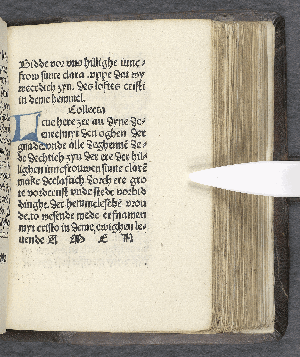 Bidde vor uns hillighe iunc-
frow sunte clara. uppe dat wy
werdich zyn. des loftes cristi
in deme hemmel.
Collecta
Leue here zee an dyne de-
enet myt den oghen der
gnade unde alle deghenne de-
de dechtich zyn der ere der hil-
lighen iuncfrouwen sunte clarē
make deelaftich dorch ere gro-
te vordenst unde stede vorbid-
dinghe. der hemmeleschē vrou-
de. to wesende mede erfnamen
myt cristo in deme ewighen le-
uende A M E N